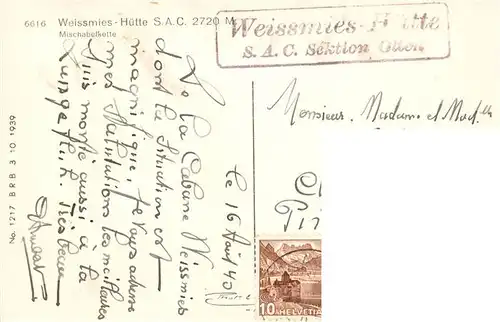 6616 Weissmies-Hütte S.A.C. 2720 M
Mischabelkette
Weissmies-Hütte
S. A. C. Sektion Olten
De la Cabane Weissmies
dont la situation est
magnifique, je vous adresse
mes salutations les meilleures
Suis monté aussi à la
très beau
le 16 Août 40
Monsieur, Madame et Mad.elle
No. 1217 B R B 3. 10. 1939
10 HELVETIA